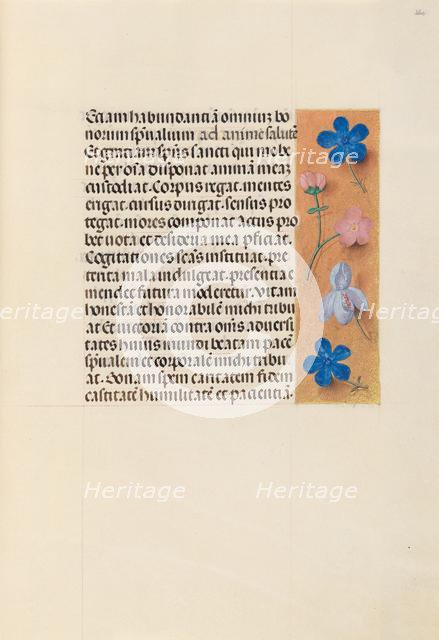 Et iam habundantiā omniuz bo
norum spūalium ad anime salutē
Et gratiam spūs sancti qui me be
ne per oīa disponat animā meaz
custodiat. Corpus regat. mentes
erigat. cursus dirigat. sensus pro
tegat. mores componat actus pro
bet vota et desideria mea pficiat.
Cogitationes scās instituat. pre
terita mala indulgeat. presentia e
mendet futura moderetur. vitam
honestā et honorabilē michi tribu
at Et victoriā contra oīs adversi
tates huius mundi beatam pacē
spūalem et corporalē michi tribu
at. Bonam spem caritatem fidem
castitatē humilitatē et pacientiā.
Heritage
Heritage
Heritage
Heritage